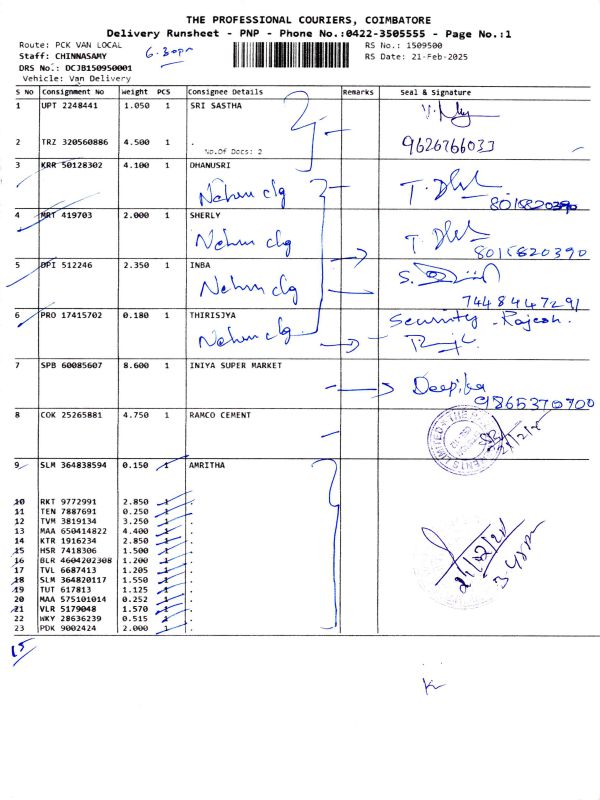 THE PROFESSIONAL COURIERS, COIMBATORE
Delivery Runsheet - PNP - Phone No.:0422-3505555 - Page No.:1
Route: PCK VAN LOCAL 6.30pm RS No.: 1509500
Staff: CHINNASAMY RS Date: 21-Feb-2025
DRS No.: DCJB150950001
Vehicle: Van Delivery
S No Consignment No Weight PCS Consignee Details Remarks Seal & Signature
1 UPT 2248441 1.050 1 SRI SASTHA
2 TRZ 320560886 4.500 1 . 9626766033
No.Of Docs: 2
3 KRR 50128302 4.100 1 DHANUSRI
Nehru clg 8015820390
4 MRT 419703 2.000 1 SHERLY
Nehru clg 8015820390
5 DPI 512246 2.350 1 INBA
Nehru clg
7448447291
6 PRO 17415702 0.180 1 THIRISJYA Security - Rajesh.
Nehru clg.
7 SPB 60085607 8.600 1 INIYA SUPER MARKET
Deepika
9865370700
8 COK 25265881 4.750 1 RAMCO CEMENT
9 SLM 364838594 0.150 1 AMRITHA
10 RKT 9772991 2.850 1 .
11 TEN 7887691 0.250 1 .
12 TVM 3819134 3.250 1 .
13 MAA 650414822 4.400 1 .
14 KTR 1916234 2.850 1 .
15 HSR 7418306 1.500 1 .
16 BLR 4604202308 1.200 1 .
17 TVL 6687413 1.205 1 .
18 SLM 364820117 1.550 1 .
19 TUT 617813 1.125 1 .
20 MAA 575101014 0.252 1 .
21 VLR 5179048 1.570 1 .
22 WKY 28636239 0.515 1 .
23 PDK 9002424 2.000 1 .
15